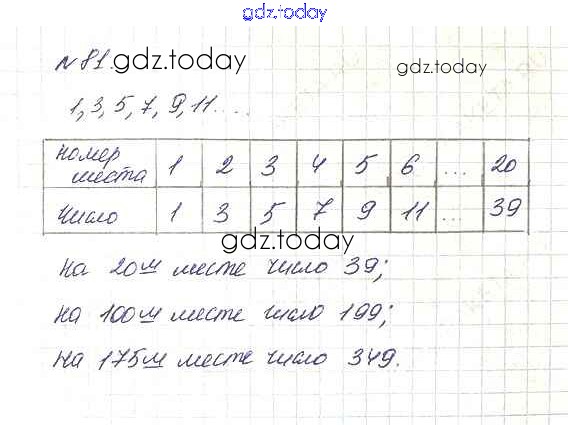 gdz.today
№ 81 gdz.today gdz.today
1, 3, 5, 7, 9, 11 ....
номер места 1 2 3 4 5 6 ... 20
число 1 3 5 7 9 11 ... 39
gdz.today
на 20м месте число 39;
на 100м месте число 199;
на 175м месте число 349.